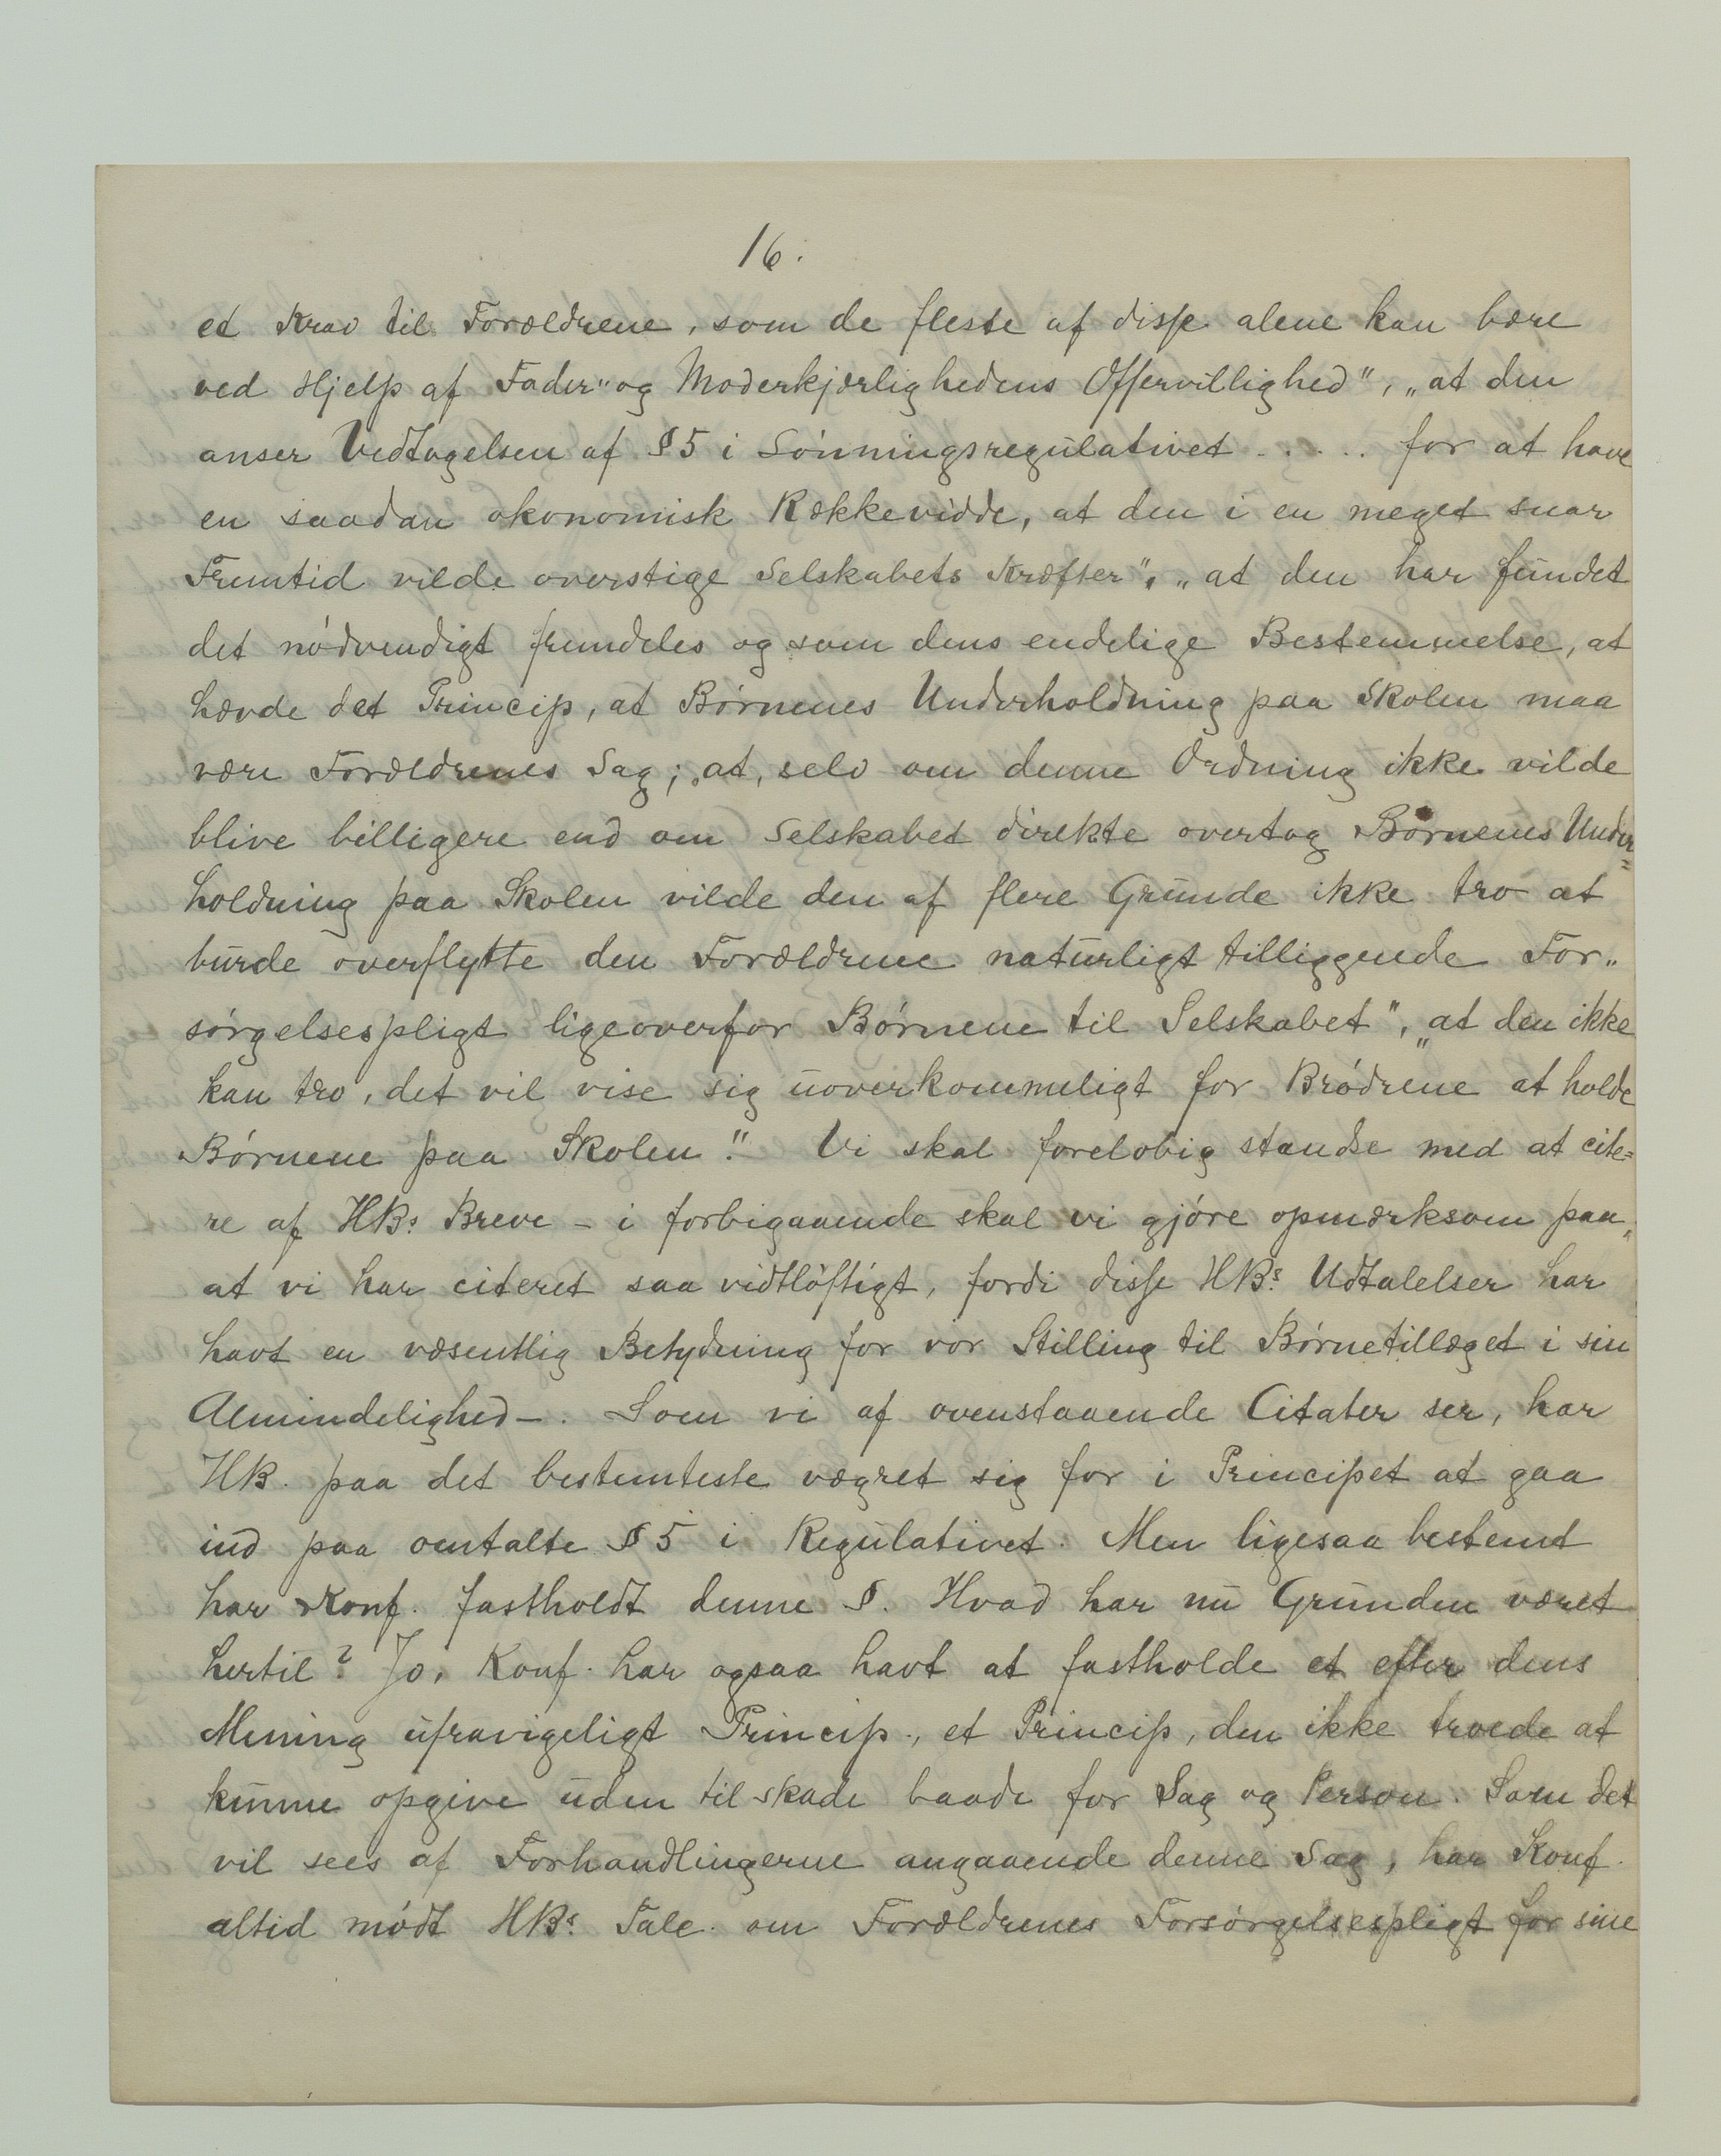 16.
et Krav til Forældrene, som de fleste af disse alene kan bære
ved Hjelp af Fader" og Moderkjærlighedens Offervillighed", „at den
anser Vedtagelsen af § 5 i Lønningsregulativet . . . . . for at have
en saadan økonomisk Rækkevidde, at den i en meget snar
Fremtid vilde overstige Selskabets Kræfter", „at den har fundet
det nødvendigt fremdeles og som dens endelige Bestemmelse, at
hævde det Princip, at Børnenes Underholdning paa Skolen maa
være Forældrenes Sag; „at, selv om denne Ordning ikke vilde
blive billigere end om Selskabet direkte overtog Børnenes Under=
holdning paa Skolen vilde den af flere Grunde ikke tro at
burde overflytte den Forældrene naturligt tilliggende For„
sørgelsespligt ligeoverfor Børnene til Selskabet", „at den ikke
kan tro, det vil vise sig uoverkommeligt for Brødrene at holde
Børnene paa Skolen." Vi skal foreløbig standse med at cite=
re af HBs. Breve – i forbigaaende skal vi gjøre opmærksom paa„
at vi har citeret saa vidtløftigt, fordi disse HBs. Udtalelser har
havt en væsentlig Betydning for vor Stilling til Børnetillæget i sin
Almindelighed –. Som vi af ovenstaaende Citater ser, har
HB. paa det bestemteste vægret sig for i Principet at gaa
ind paa omtalte § 5 i Regulativet. Men ligesaa bestemt
har Konf. fastholdt denne §. Hvad har nu Grunden været
hertil? Jo, Konf. har ogsaa havt at fastholde et efter dens
Mening ufravigeligt Princip., et Princip, den ikke troede at
kunne opgive uden til skade baade for Sag og Person. Som det
vil sees af Forhandlingerne angaaende denne Sag, har Konf.
altid mødt HBs. Tale om Forældrenes Forsørgelsespligt for sine